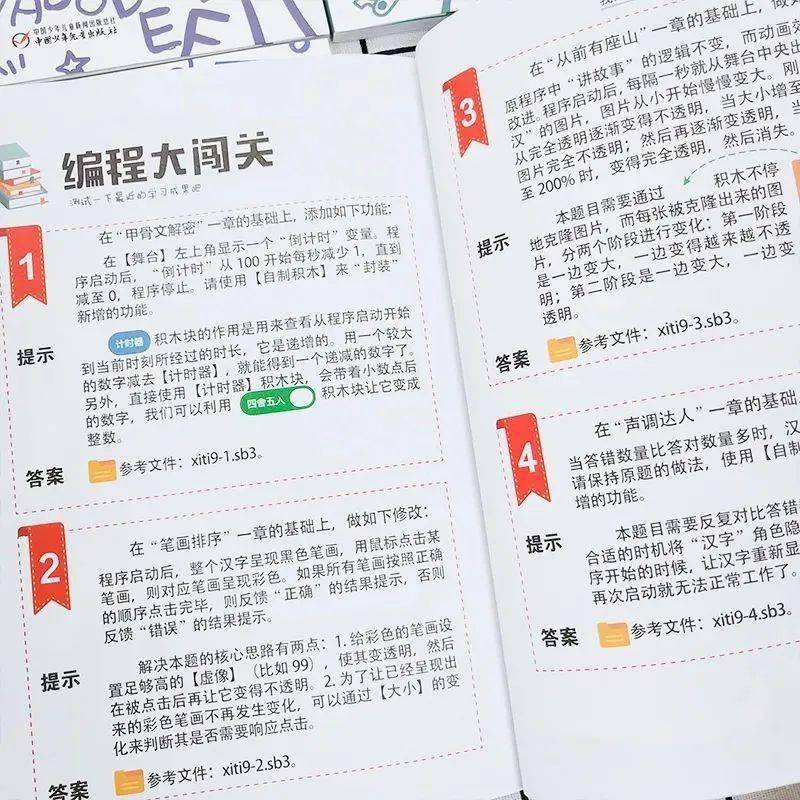 中国少年儿童新闻出版总社
中国少年儿童出版社
编程大闯关
测试一下最近的学习成果吧
1
在“甲骨文解密”一章的基础上，添加如下功能：
在【舞台】左上角显示一个“倒计时”变量。程
序启动后，“倒计时”从100开始每秒减少1，直到
减至0，程序停止。请使用【自制积木】来“封装”
新增的功能。
提示
计时器 积木块的作用是用来查看从程序启动开始
到当前时刻所经过的时长，它是递增的。用一个较大
的数字减去【计时器】，就能得到一个递减的数字了。
另外，直接使用【计时器】积木块，会带着小数点后
的数字，我们可以利用 四舍五入 积木块让它变成
整数。
答案
参考文件：xiti9-1.sb3。
2
在“笔画排序”一章的基础上，做如下修改：
程序启动后，整个汉字呈现黑色笔画，用鼠标点击某
笔画，则对应笔画呈现彩色。如果所有笔画按照正确
的顺序点击完毕，则反馈“正确”的结果提示，否则
反馈“错误”的结果提示。
提示
解决本题的核心思路有两点：1. 给彩色的笔画设
置足够高的【虚像】（比如99），使其变透明，然后
在被点击后再让它变得不透明。2. 为了让已经呈现出
来的彩色笔画不再发生变化，可以通过【大小】的变
化来判断其是否需要响应点击。
答案
参考文件：xiti9-2.sb3。
3
在“从前有座山”一章的基础上，做如
原程序中“讲故事”的逻辑不变，而动画效
改进。程序启动后，每隔一秒就从舞台中央出
汉”的图片，图片从小开始慢慢变大。刚
从完全透明逐渐变得不透明，当大小增至
图片完全不透明；然后再逐渐变透明，当
至200%时，变得完全透明，然后消失。
提示
本题目需要通过 积木不停
地克隆图片，而每张被克隆出来的图
片，分两个阶段进行变化：第一阶段
是一边变大，一边变得越来越不透
明；第二阶段是一边变大，一边变
透明。
答案
参考文件：xiti9-3.sb3。
4
在“声调达人”一章的基础上
当答错数量比答对数量多时，汉
请保持原题的做法，使用【自制
增的功能。
提示
本题目需要反复对比答错
合适的时机将“汉字”角色隐
序开始的时候，让汉字重新显
再次启动就无法正常工作了。
答案
参考文件：xiti9-4.sb3。